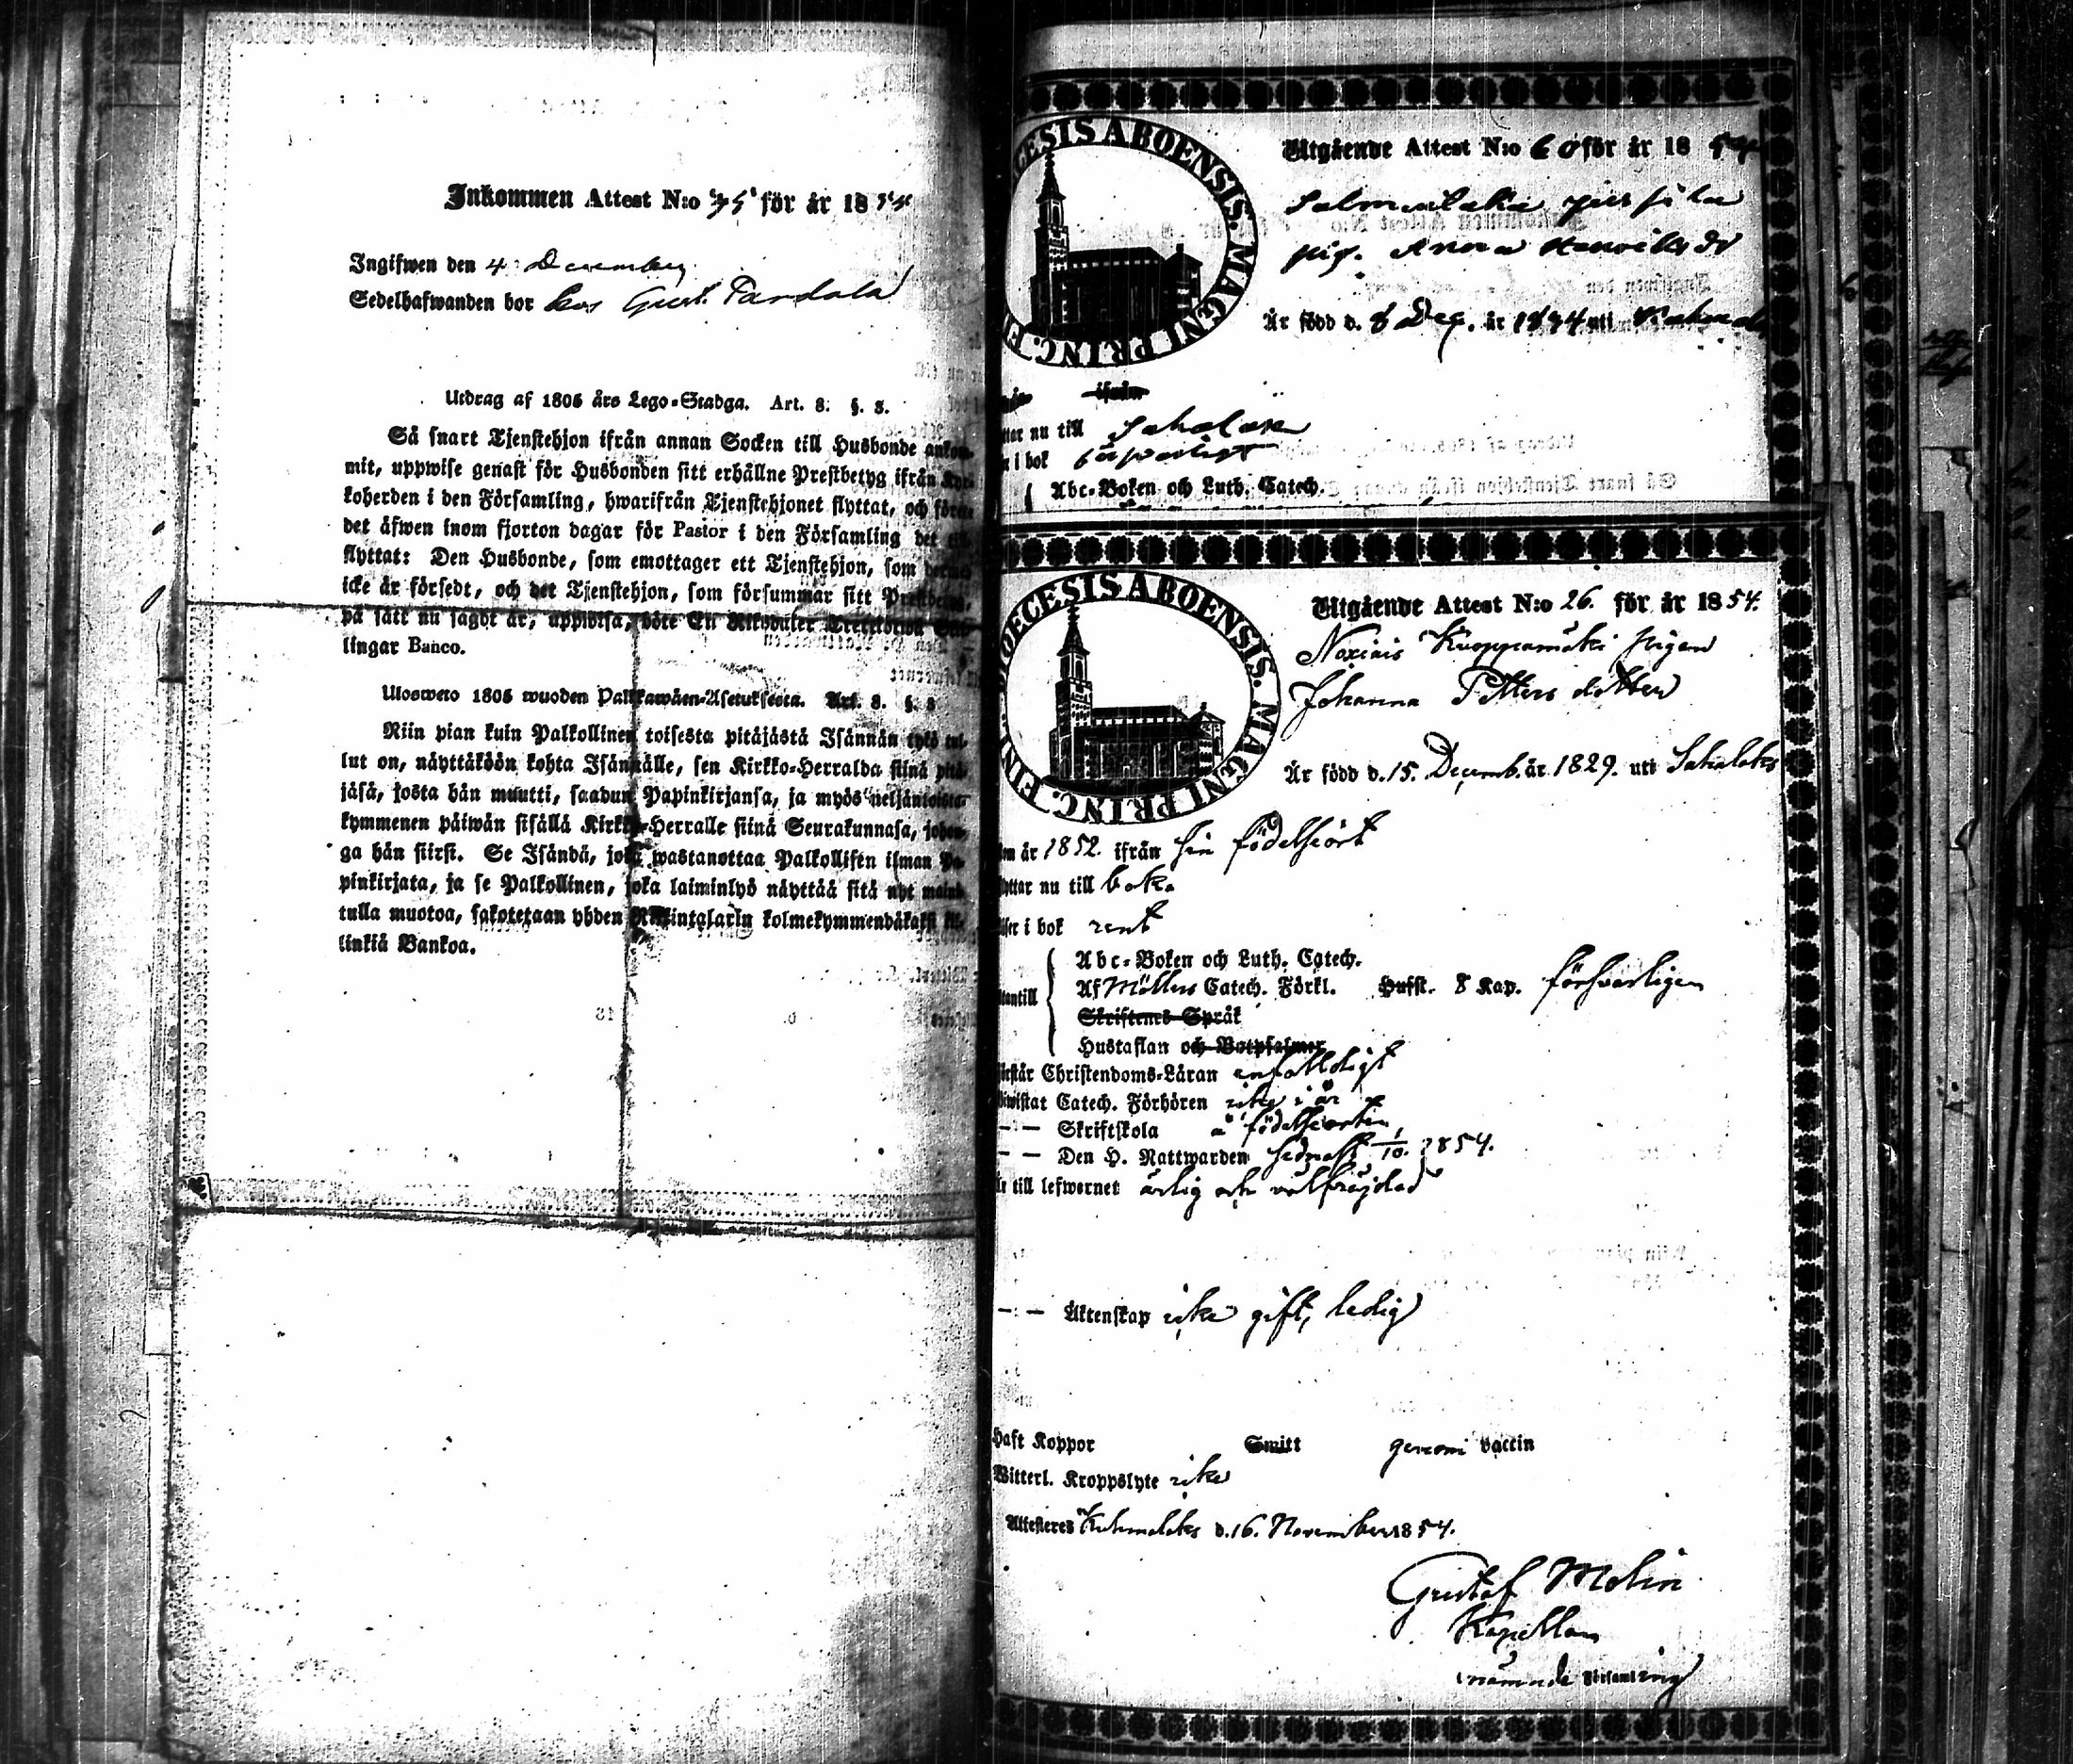 Inkommen Attest N:o 35 för år 1854
Ingifwen den 4 December
Sedelhafwanden bor hos Gust. Pandala
Utdrag af 1805 års Lego-Stadga. Art. 8. §. 3.
Så snart Tjenstehjon ifrån annan Socken till Husbonde ankom-
mit, uppwise genast för Husbonden sitt erhållne Prestbetyg ifrån Kyr-
koherden i den Församling, hwarifrån Tjenstehjonet flyttat, och förete
det äfwen inom fjorton dagar för Pastor i den Församling det
flyttat: Den Husbonde, som emottager ett Tjenstehjon, som dermed
icke är försedt, och det Tjenstehjon, som försummar sitt Prestbetyg,
på sätt nu sagdt är, uppwisa, böte En Riksdaler
lingar Banco.
Ulosweto 1805 wuoden Palkkawäen-Asetuksesta. Art. 8. §. 3
Niin pian kuin Palkollinen toisesta pitäjästä Isännän tykö tul-
lut on, näyttäköön kohta Isännälle, sen Kirkko-Herralda siinä pitä-
jäsä, josta hän muutti, saadun Papinkirjansa, ja myös neljäntoista-
kymmenen päiwän sisällä Kirkko-Herralle siinä Seurakunnasa, johon-
ga hän siirsi. Se Isändä, joka wastanottaa Palkollisen ilman Pa-
pinkirjata, ja se Palkollinen, joka laiminlyö näyttää sitä nyt maini-
tulla muotoa, sakotetaan yhden Riksintalarin kolmekymmendäkaksi kil-
linkiä Bankoa.
ECESIS ABOENSIS. MAGNI PRINC. F
Utgående Attest N:o 60 för år 1854
pig. Anna
Är född d. 8 Dec. år 1834 uti
ifrån
nu till Sahalax
i bok försvarligt
Abc-Boken och Luth. Catech.
DIOECESIS ABOENSIS. MAGNI PRINC. FIN
Utgående Attest N:o 26. för år 1854.
Kuoppamäki pigan
Johanna Petters dotter
Är född d. 15. Decemb. år 1829. uti Sahalaks
år 1852. ifrån sin födelseort
flyttar nu till baka
i bok rent
Abc-Boken och Luth. Catech.
Af Möllers Catech. Förkl. Hufst. 8 Kap. försvarligen
Skriftenes Språk
Hustaflan och Botpsalmer
Förstår Christendoms-Läran enfaldigt
Biwistat Catech. Förhören icke i år
— — Skriftskola å födelseorten
— — Den H. Nattwarden sednast 1/10. 1854.
till lefwernet ärlig och välfräjdad
— — Äktenskap icke gift, ledig
Haft Koppor Smitt genom vaccin
Witterl. Kroppslyte icke
Attesteres Kuhmalaks d. 16. November 1854.
Gustaf Molin
Kapellan